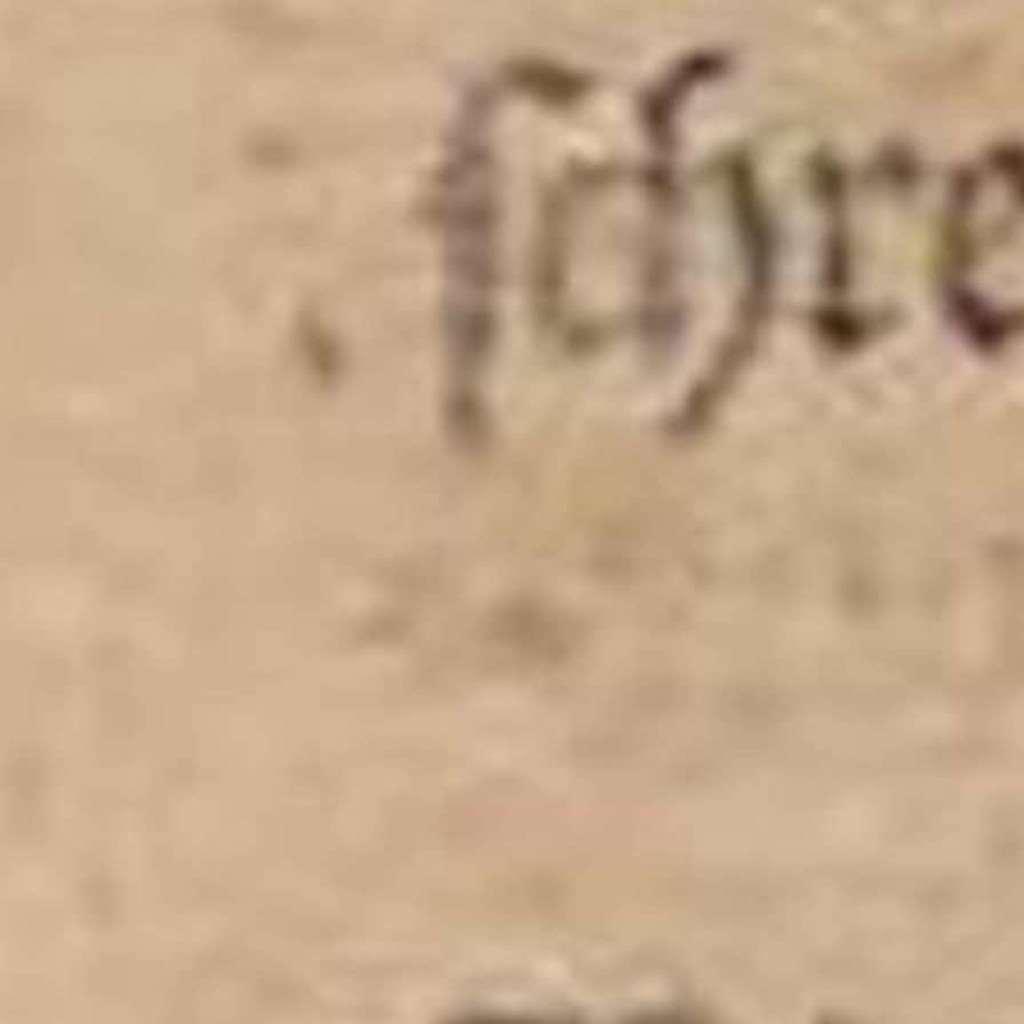 ſchre